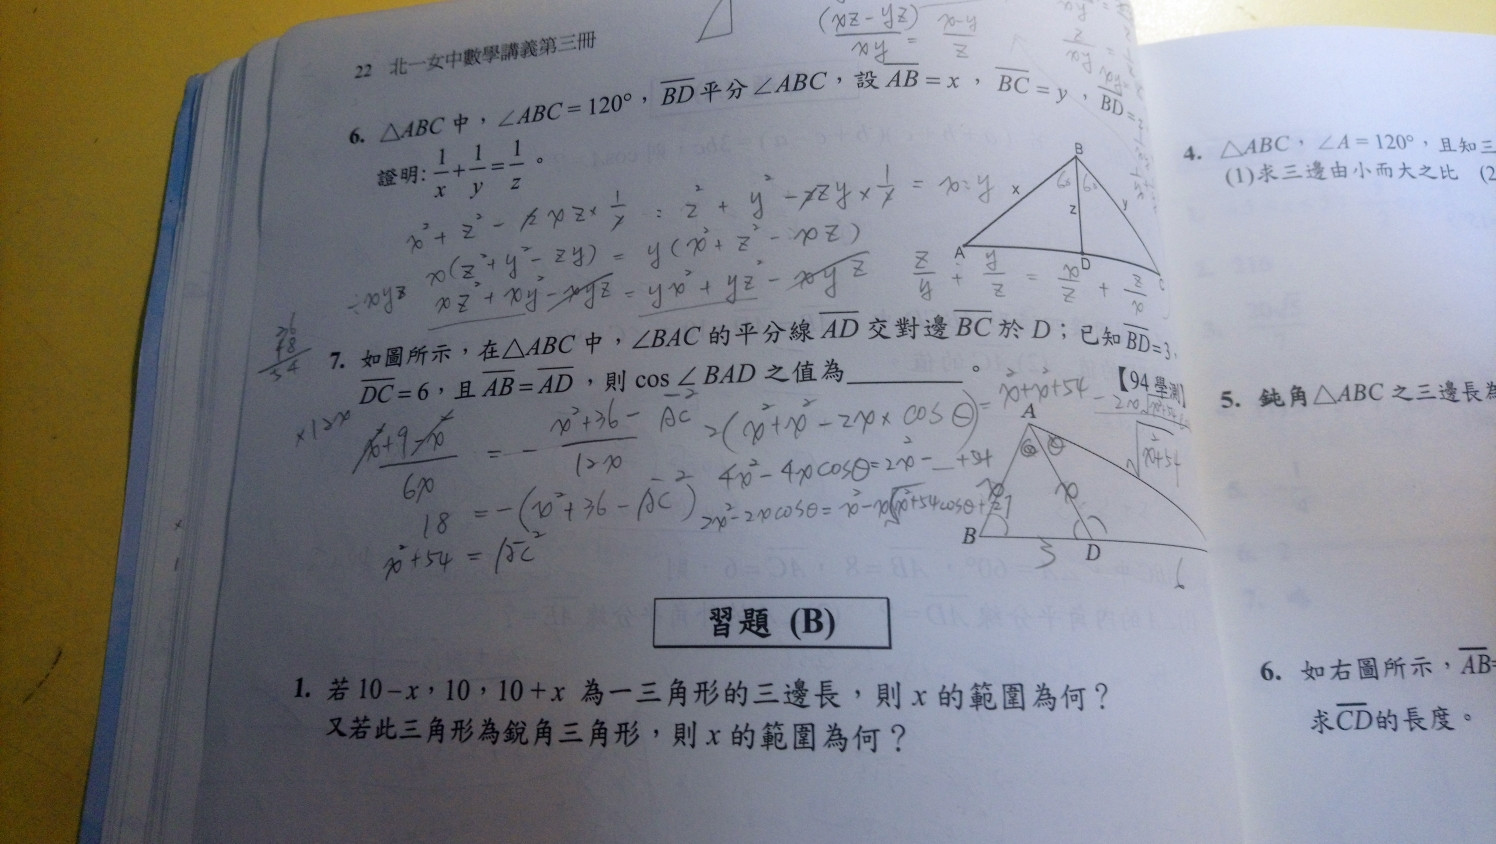 22 北一女中數學講義第三冊
(xz - yz)/xy = (x-y)/z
6. △ABC 中，∠ABC = 120°，BD 平分 ∠ABC，設 AB = x，BC = y，BD =
證明: 1/x + 1/y = 1/z。
B
60 60
x
z
y
A
D
x² + z² -
: z² + y² -
= x : y
x(z² + y² - zy) = y(x² + z² - xz)
÷xyz xz² + xy² - xyz = yx² + yz² - xyz
z/y + y/z = x/z + z/x
7. 如圖所示，在△ABC 中，∠BAC 的平分線 AD 交對邊 BC 於 D；已知 BD = 3，
DC = 6，且 AB = AD，則 cos∠BAD 之值為________。
【94 學測】
×12x
(x² + 9 - x²)/6x = - (x² + 36 - AC²)/12x
18 = -(x² + 36 - AC²)
x² + 54 = AC²
2(x² + x² - 2x × cosθ) = x² + x² + 54
4x² - 4x cosθ = 2x² -
+54
2x² - 2x cosθ = x² - x√x²+54 cosθ + 27
√x²+54
A
θ θ
x x
B
3
D
習題 (B)
1. 若 10 - x，10，10 + x 為一三角形的三邊長，則 x 的範圍為何？
又若此三角形為銳角三角形，則 x 的範圍為何？
4. △ABC，∠A = 120°，且知三
(1)求三邊由小而大之比 (2
5. 鈍角△ABC 之三邊長為
6. 如右圖所示，AB=
求CD的長度。